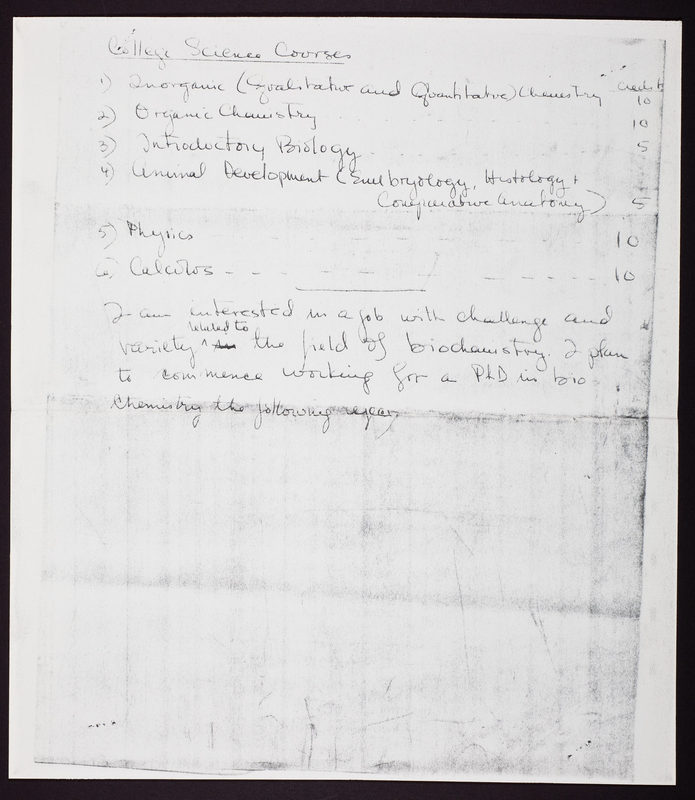 College Science Courses
Credits
1) Inorganic (Qualitative and Quantitative) Chemistry 10
2) Organic Chemistry 10
3) Introductory Biology 5
4) Animal Development (Embryology, Histology +
Comparative Anatomy) 5
5) Physics - - - - - - 10
6) Calculus - - - - - - 10
I am interested in a job with challenge and
variety related to the field of biochemistry. I plan
to commence working for a PhD in bio
chemistry the following year,